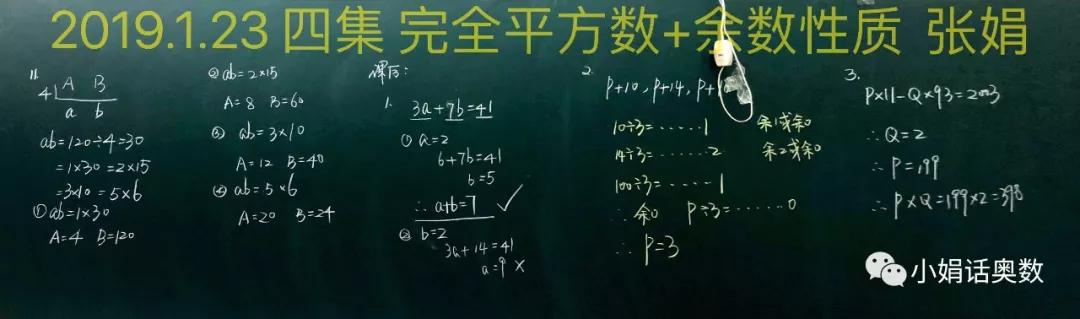 2019.1.23 四集 完全平方数+余数性质 张娟
11.
4 A B
a b
ab=120÷4=30
=1×30=2×15
=3×10=5×6
① ab=1×30
A=4 B=120
② ab=2×15
A=8 B=60
③ ab=3×10
A=12 B=40
④ ab=5×6
A=20 B=24
课后:
1.
3a+7b=41
① a=2
6+7b=41
b=5
∴ a+b=7 ✓
② b=2
3a+14=41
a=9 ×
2.
P+10, P+14, P+
10÷3=······1 余1或余0
14÷3=······2 余2或余0
100÷3=······1
∴ 余0 P÷3=······0
∴ P=3
3.
P×11-Q×93=2003
∴ Q=2
∴ P=199
∴ P×Q=199×2=398
小娟话奥数